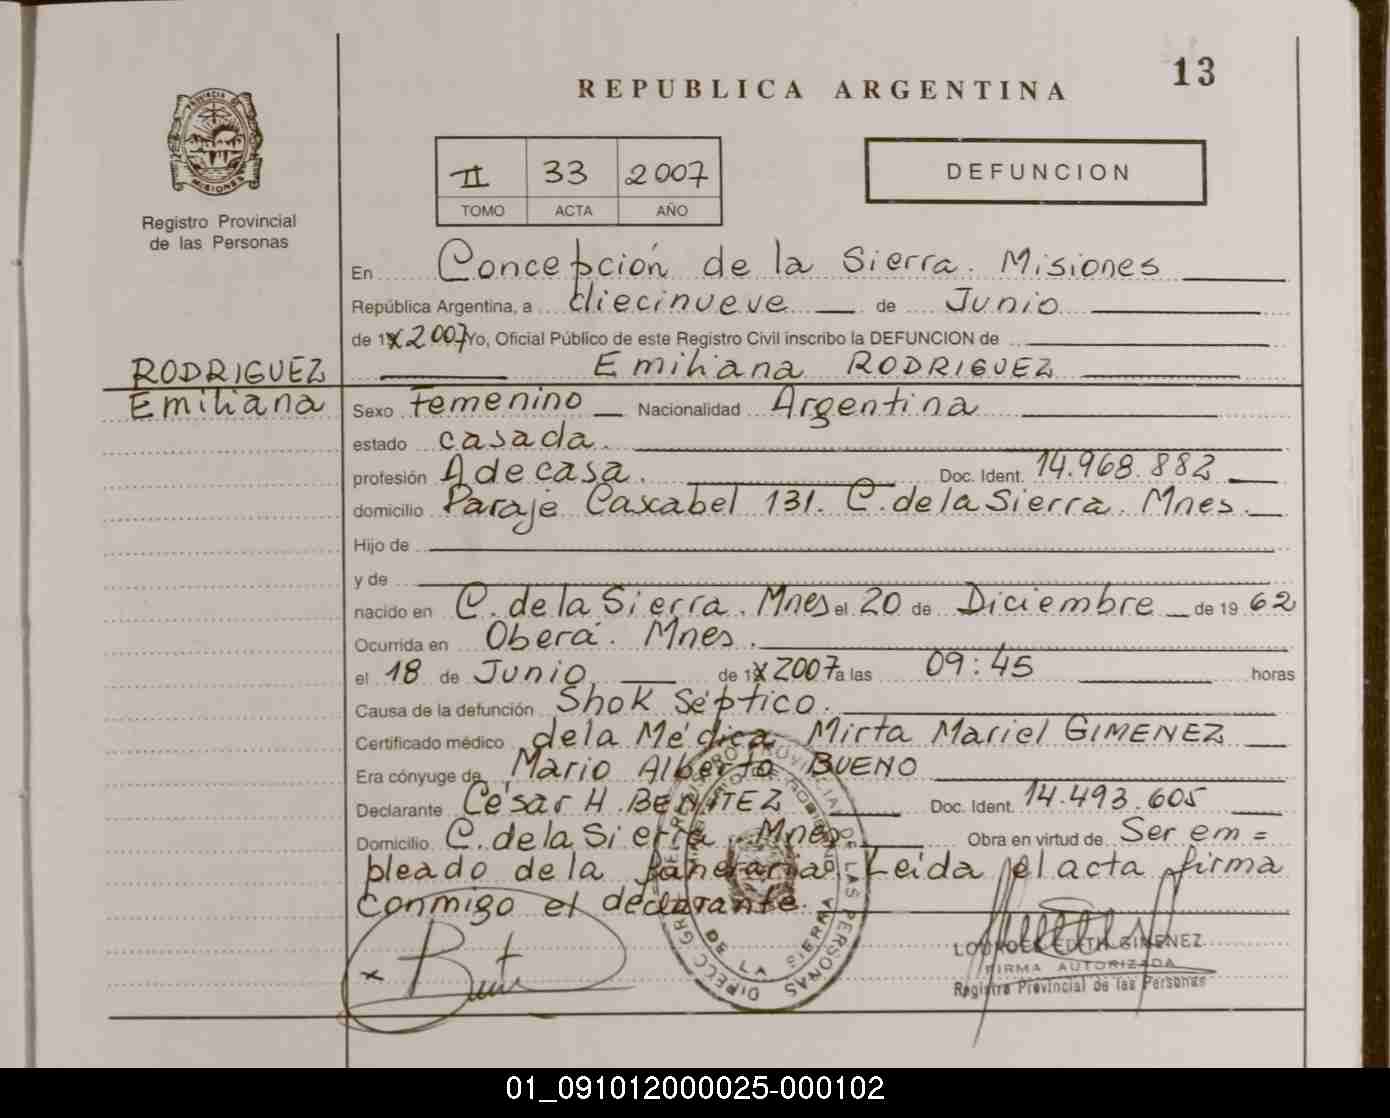 13
REPUBLICA ARGENTINA
II 33 2007
TOMO ACTA AÑO
DEFUNCION
Registro Provincial
de las Personas
En Concepción de la Sierra. Misiones
República Argentina, a diecinueve de Junio
de 1X2007 Yo, Oficial Público de este Registro Civil inscribo la DEFUNCION de
RODRIGUEZ Emiliana RODRIGUEZ
Emiliana Sexo Femenino Nacionalidad Argentina
estado casada.
profesión Adecasa. Doc. Ident. 14.968.882
domicilio Paraje Caxcabel 131. C. de la Sierra. Mnes.
Hijo de
y de
nacido en C. de la Sierra. Mnes el 20 de Diciembre de 19 62
Ocurrida en Oberá. Mnes.
el 18 de Junio de 1X2007 a las 09:45 horas
Causa de la defunción Shok Séptico.
Certificado médico dela Médica Mirta Mariel GIMENEZ
Era cónyuge de Mario Alberto BUENO
Declarante César H. BENITEZ Doc. Ident. 14.493.605
Domicilio C. de la Sierra. Mnes Obra en virtud de Ser em=
pleado de la funeraria Leida el acta firma
conmigo el declarante.
X
LOURDES EDITH GIMENEZ
FIRMA AUTORIZADA
Registro Provincial de las Personas
01_091012000025-000102